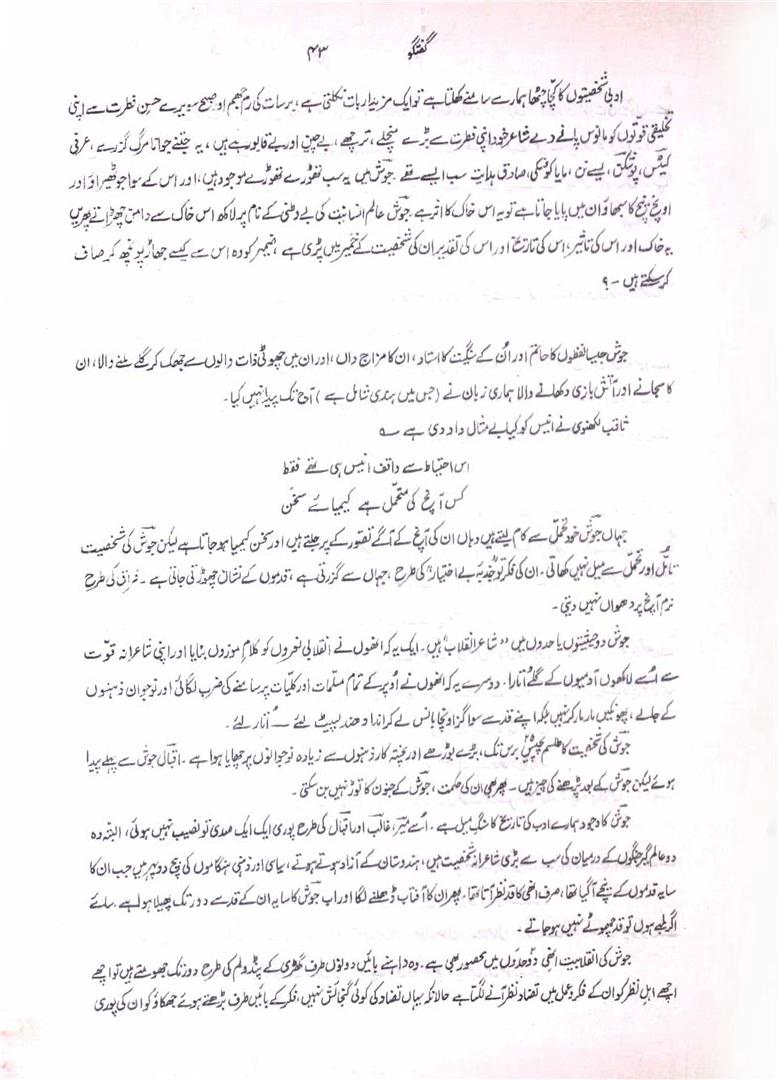 گفتگو ۴۳
ادبی شخصیتوں کا کچّا چٹھا ہمارے سامنے کھلتا ہے تو ایک مزیدار بات نکلتی ہے، برسات کی رم جھم اور صبح سویرے حسنِ فطرت سے اپنی
تخلیقی قوّتوں کو مانوس پانے والے شاعر خود اپنی فطرت سے بڑے منچلے، ترچھے، بے چین اور بے قابو رہے ہیں، یہ جتنے جوانا مرگ گزرے، عرفی
کیٹس، پوشکن، یسے نن، مایا کوفسکی، صادق ہدایت سب ایسے تھے۔ جوش میں یہ سب تھوڑے تھوڑے موجود ہیں، اور اس کے سوا جو ٹھیراؤ اور
اونچ نیچ کا سبھاؤ ان میں پایا جاتا ہے تو یہ اس خاک کا اثر ہے۔ جوش عالم انسانیت کی بے وطنی کے نام پر لاکھ اس خاک سے دامن چھڑاتے پھریں
یہ خاک اور اس کی تاثیر، اس کی تاریخ اور اس کی تقدیر ان کی شخصیت کے خمیر میں پڑی ہے، خمیر کو وہ اس سے کیسے جھاڑ پونچھ کر صاف
کر سکتے ہیں ۔؟
جوش جیسا لفظوں کا حاتم اور اُن کے سنگیت کا استاد، ان کا مزاج داں، اور ان میں چھوٹی ذات والوں سے جھک کر گلے ملنے والا، ان
کا سجانے اور آتش بازی دکھانے والا ہماری زبان نے (جس میں ہندی شامل ہے) آج تک پیدا نہیں کیا۔
ثاقب لکھنوی نے انیس کو کیا بے مثال داد دی ہے ؎
اس احتیاط سے واقف انیس ہی تھے فقط
کس آنچ کی متحمّل ہے کیمیائے سخن
جہاں جوش خود تحمّل سے کام لیتے ہیں وہاں ان کی آنچ کے آگے تصّور کے پر جلتے ہیں اور سخن کیمیا ہو جاتا ہے لیکن جوش کی شخصیت
تامّل اور تحمّل سے میل نہیں کھاتی۔ ان کی فکر تو ”جذبۂ بے اختیار“ کی طرح، جہاں سے گزرتی ہے، قدموں کے نشان چھوڑتی جاتی ہے۔ فراق کی طرح
نرم آنچ پر دھواں نہیں دیتی۔
جوش دو حیثیتوں یا حدوں میں ”شاعرِ انقلاب“ ہیں۔ ایک یہ کہ انھوں نے انقلابی نعروں کو کلام موزوں بنایا اور اپنی شاعرانہ قوّت
سے اُسے لاکھوں آدمیوں کے گلے اتارا۔ دوسرے یہ کہ انھوں نے اُوپر کے تمام مسلمات اور کلیات پر سامنے کی ضرب لگائی اور نوجوان ذہنوں
کے جالے، پھونکیں مار مار کر نہیں بلکہ اپنے قد سے سوا گز اونچا بانس لے کر اندھا دھند لپیٹ لئے — اُتار لئے۔
جوش کی شخصیت کا طلسم پچیس برس تک، بڑے بوڑھے اور پختہ کار ذہنوں سے زیادہ نوجوانوں پر چھایا ہوا ہے۔ اقبال جوش سے پہلے پیدا
ہوئے لیکن جوش کے بعد پڑھنے کی چیز ہیں۔ پھر بھی ان کی حکمت، جوش کے جنون کا توڑ نہیں بن سکتی۔
جوش کا وجود ہمارے ادب کی تاریخ کا سنگِ میل ہے۔ اُسے میر، غالب اور اقبال کی طرح پوری ایک ایک صدی تو نصیب نہیں ہوئی، البتّہ وہ
دو عالم گیر جنگوں کے درمیان کی سب سے بڑی شاعرانہ شخصیت ہیں، ہندوستان کے آزاد ہوتے ہوتے، سیاسی اور ذہنی ہنگاموں کی بیچ دوپہر میں جب ان کا
سایہ قدموں کے نیچے آ گیا تھا، صرف انھی کا قد نظر آتا تھا۔ پھر ان کا آفتاب ڈھلنے لگا اور اب جوش کا سایہ ان کے قد سے دور تک پھیلا ہوا ہے۔ سائے
اگر لمبے ہوں تو قد چھوٹے نہیں ہو جاتے۔
جوش کی انقلابیت انھی دو حدوں میں محصور بھی ہے۔ وہ داہنے بائیں دونوں طرف گھڑی کے پنڈولم کی طرح دور تک جھولتے ہیں تو اچھے
اچھے اہل نظر کو ان کے فکر و عمل میں تضاد نظر آنے لگتا ہے حالانکہ یہاں تضاد کی کوئی گنجائش نہیں، فکر کے بائیں طرف بڑھتے ہوئے جھکاؤ کو ان کی پوری